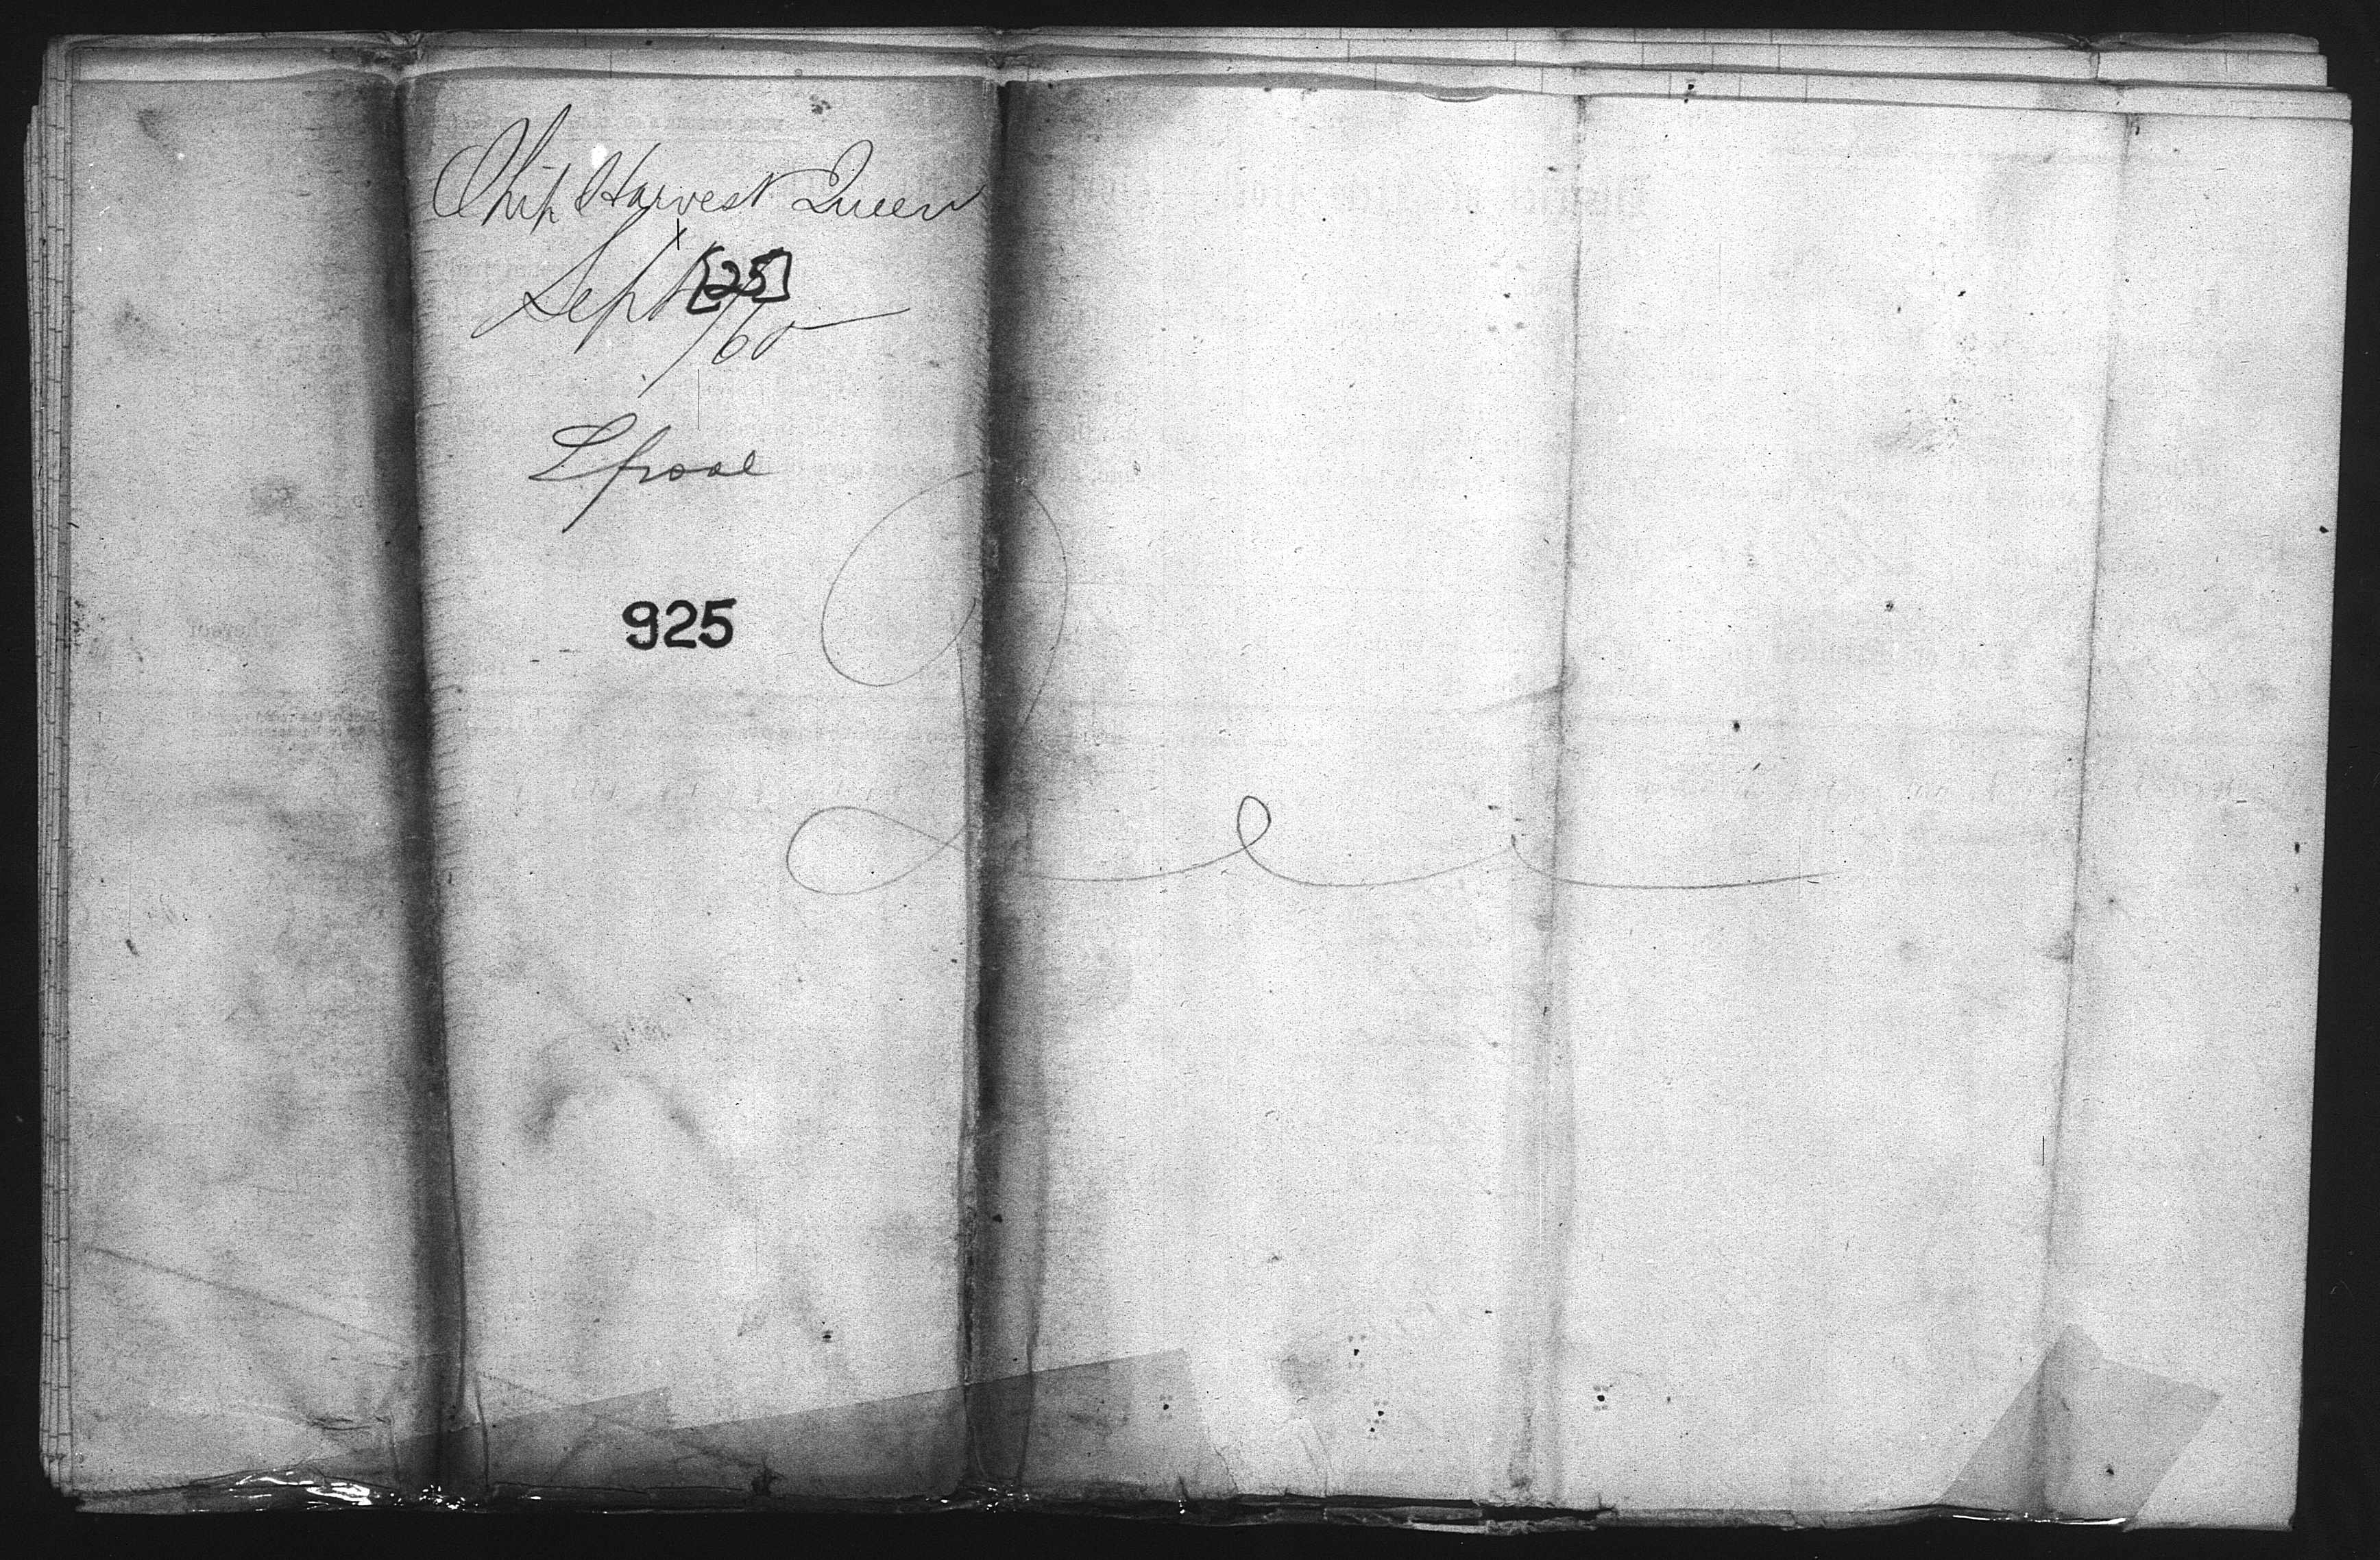 Ship Harvest Queen
Sept [25]
/60
L'pool
925